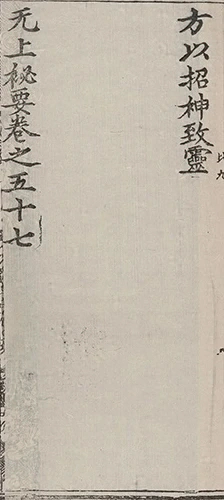 方以招神致靈
无上秘要卷之五十七